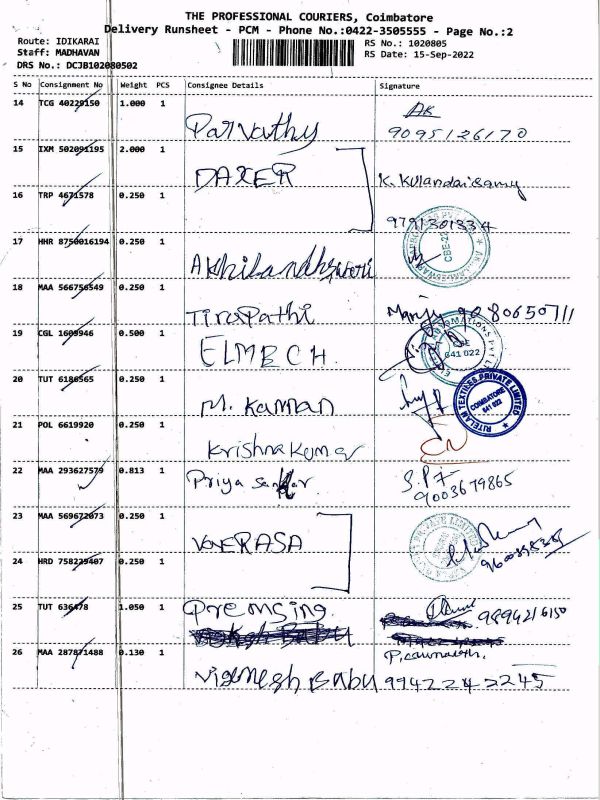 THE PROFESSIONAL COURIERS, Coimbatore
Delivery Runsheet - PCM - Phone No.:0422-3505555 - Page No.:2
Route: IDIKARAI
RS No.: 1020805
Staff: MADHAVAN
RS Date: 15-Sep-2022
DRS No.: DCJB102080502
S No Consignment No Weight PCS Consignee Details Signature
14 TCG 40229150 1.000 1 Parvathy AK
9095126170
15 IXM 502091195 2.000 1 DAXER K. Kulandaisamy
16 TRP 4671578 0.250 1
9791301334
17 HHR 8750016194 0.250 1 Akhilandheswari
18 MAA 566756549 0.250 1 Tirupathi 9080650711
19 CGL 1609946 0.500 1 ELMECH.
641 022
20 TUT 6186565 0.250 1 M. Kannan
RITELAM TEXTILES PRIVATE LIMITED
COIMBATORE
641 022
21 POL 6619920 0.250 1 Krishna Kumar CN
22 MAA 293627579 0.813 1 Priya S.P.
9003679865
23 MAA 569672073 0.250 1 VONERASA
24 HRD 758229407 0.250 1
25 TUT 636478 1.050 1 Premsing 9894216150
26 MAA 287871488 0.130 1 Vignesh Babu 9942242245